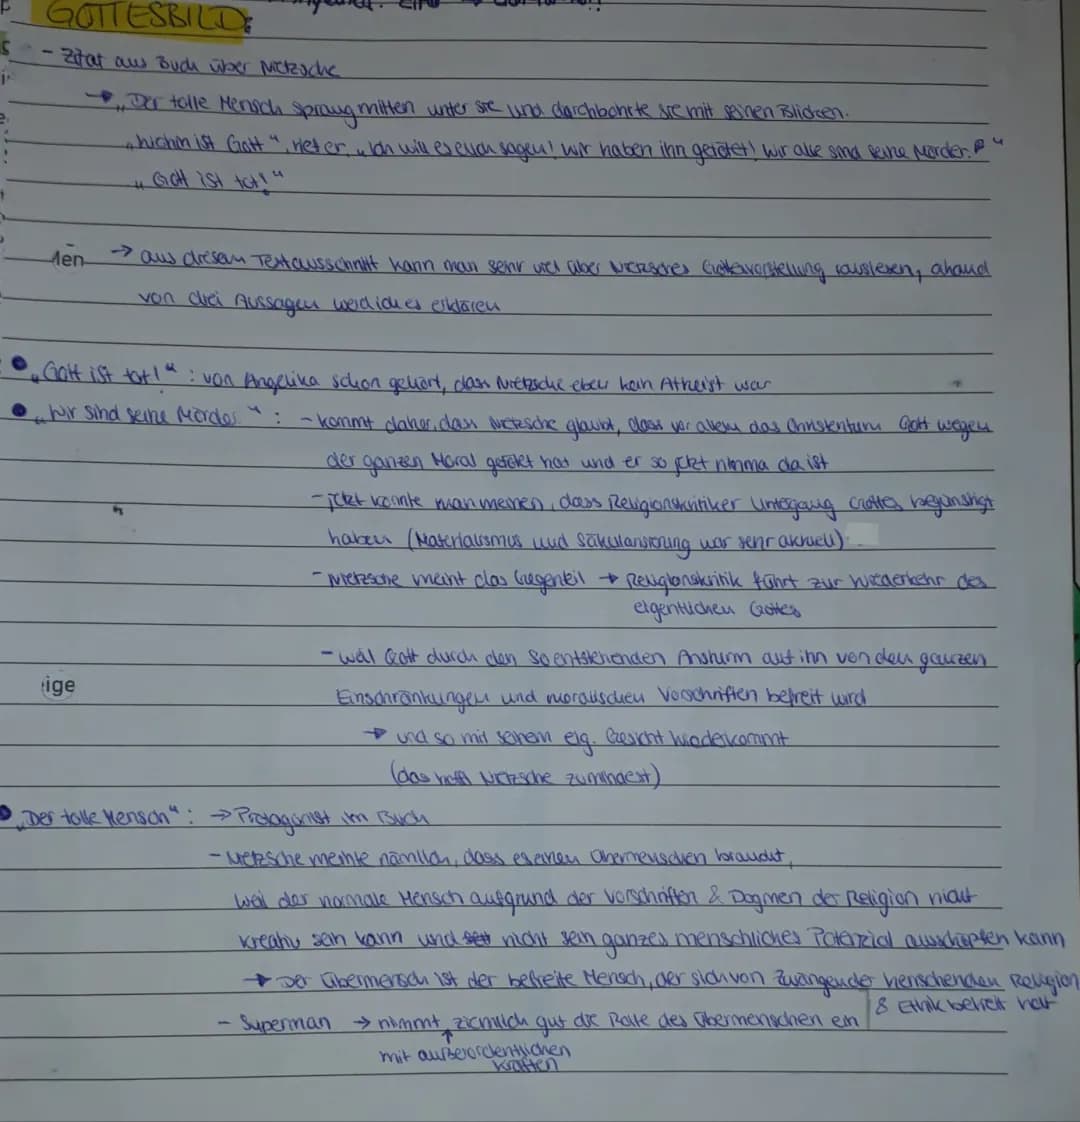 GOTTESBILD:
- Zitat aus Buch über Nietzsche
→ „Der tolle Mensch sprang mitten unter sie und durchbohrte sie mit seinen Blicken.
„Wohin ist Gott", rief er, „ich will es euch sagen! Wir haben ihn getötet! Wir alle sind seine Mörder."
„Gott ist tot!"
→ aus diesem Textausschnitt kann man sehr viel über Nietzsches Gottesvorstellung rauslesen, ahand
von drei Aussagen werd ich es erklären
● „Gott ist tot!": von Angelika schon gehört, dass Nietzsche eben kein Atheist war
● „Wir sind seine Mörder": - kommt daher, dass Nietzsche glaubt, dass vor allem das Christentum Gott wegen
der ganzen Moral getötet hat und er so jetzt nimma da ist
- jetzt könnte man meinen, dass Religionskritiker Untergang Gottes begünstigt
haben (Materialismus und Säkularisierung war sehr aktuell)
- Nietzsche meint das Gegenteil → Religionskritik führt zur Wiederkehr des
eigentlichen Gottes
- weil Gott durch den so entstehenden Ansturm auf ihn von den ganzen
Einschränkungen und moralischen Vorschriften befreit wird
ige
→ und so mit seinem eig. Gesicht wiederkommt
(das hofft Nietzsche zumindest)
● „Der tolle Mensch": → Protagonist im Buch
- Nietzsche meinte nämlich, dass es einen Übermenschen braucht,
weil der normale Mensch aufgrund der Vorschriften & Dogmen der Religion nicht
kreativ sein kann und nicht sein ganzes menschliches Potenzial ausschöpfen kann
→ Der Übermensch ist der befreite Mensch, der sich von Zwängen der herrschenden Religion
& Ethik befreit hat
- Superman → nimmt ziemlich gut die Rolle des Übermenschen ein
mit außerordentlichen
Kräften